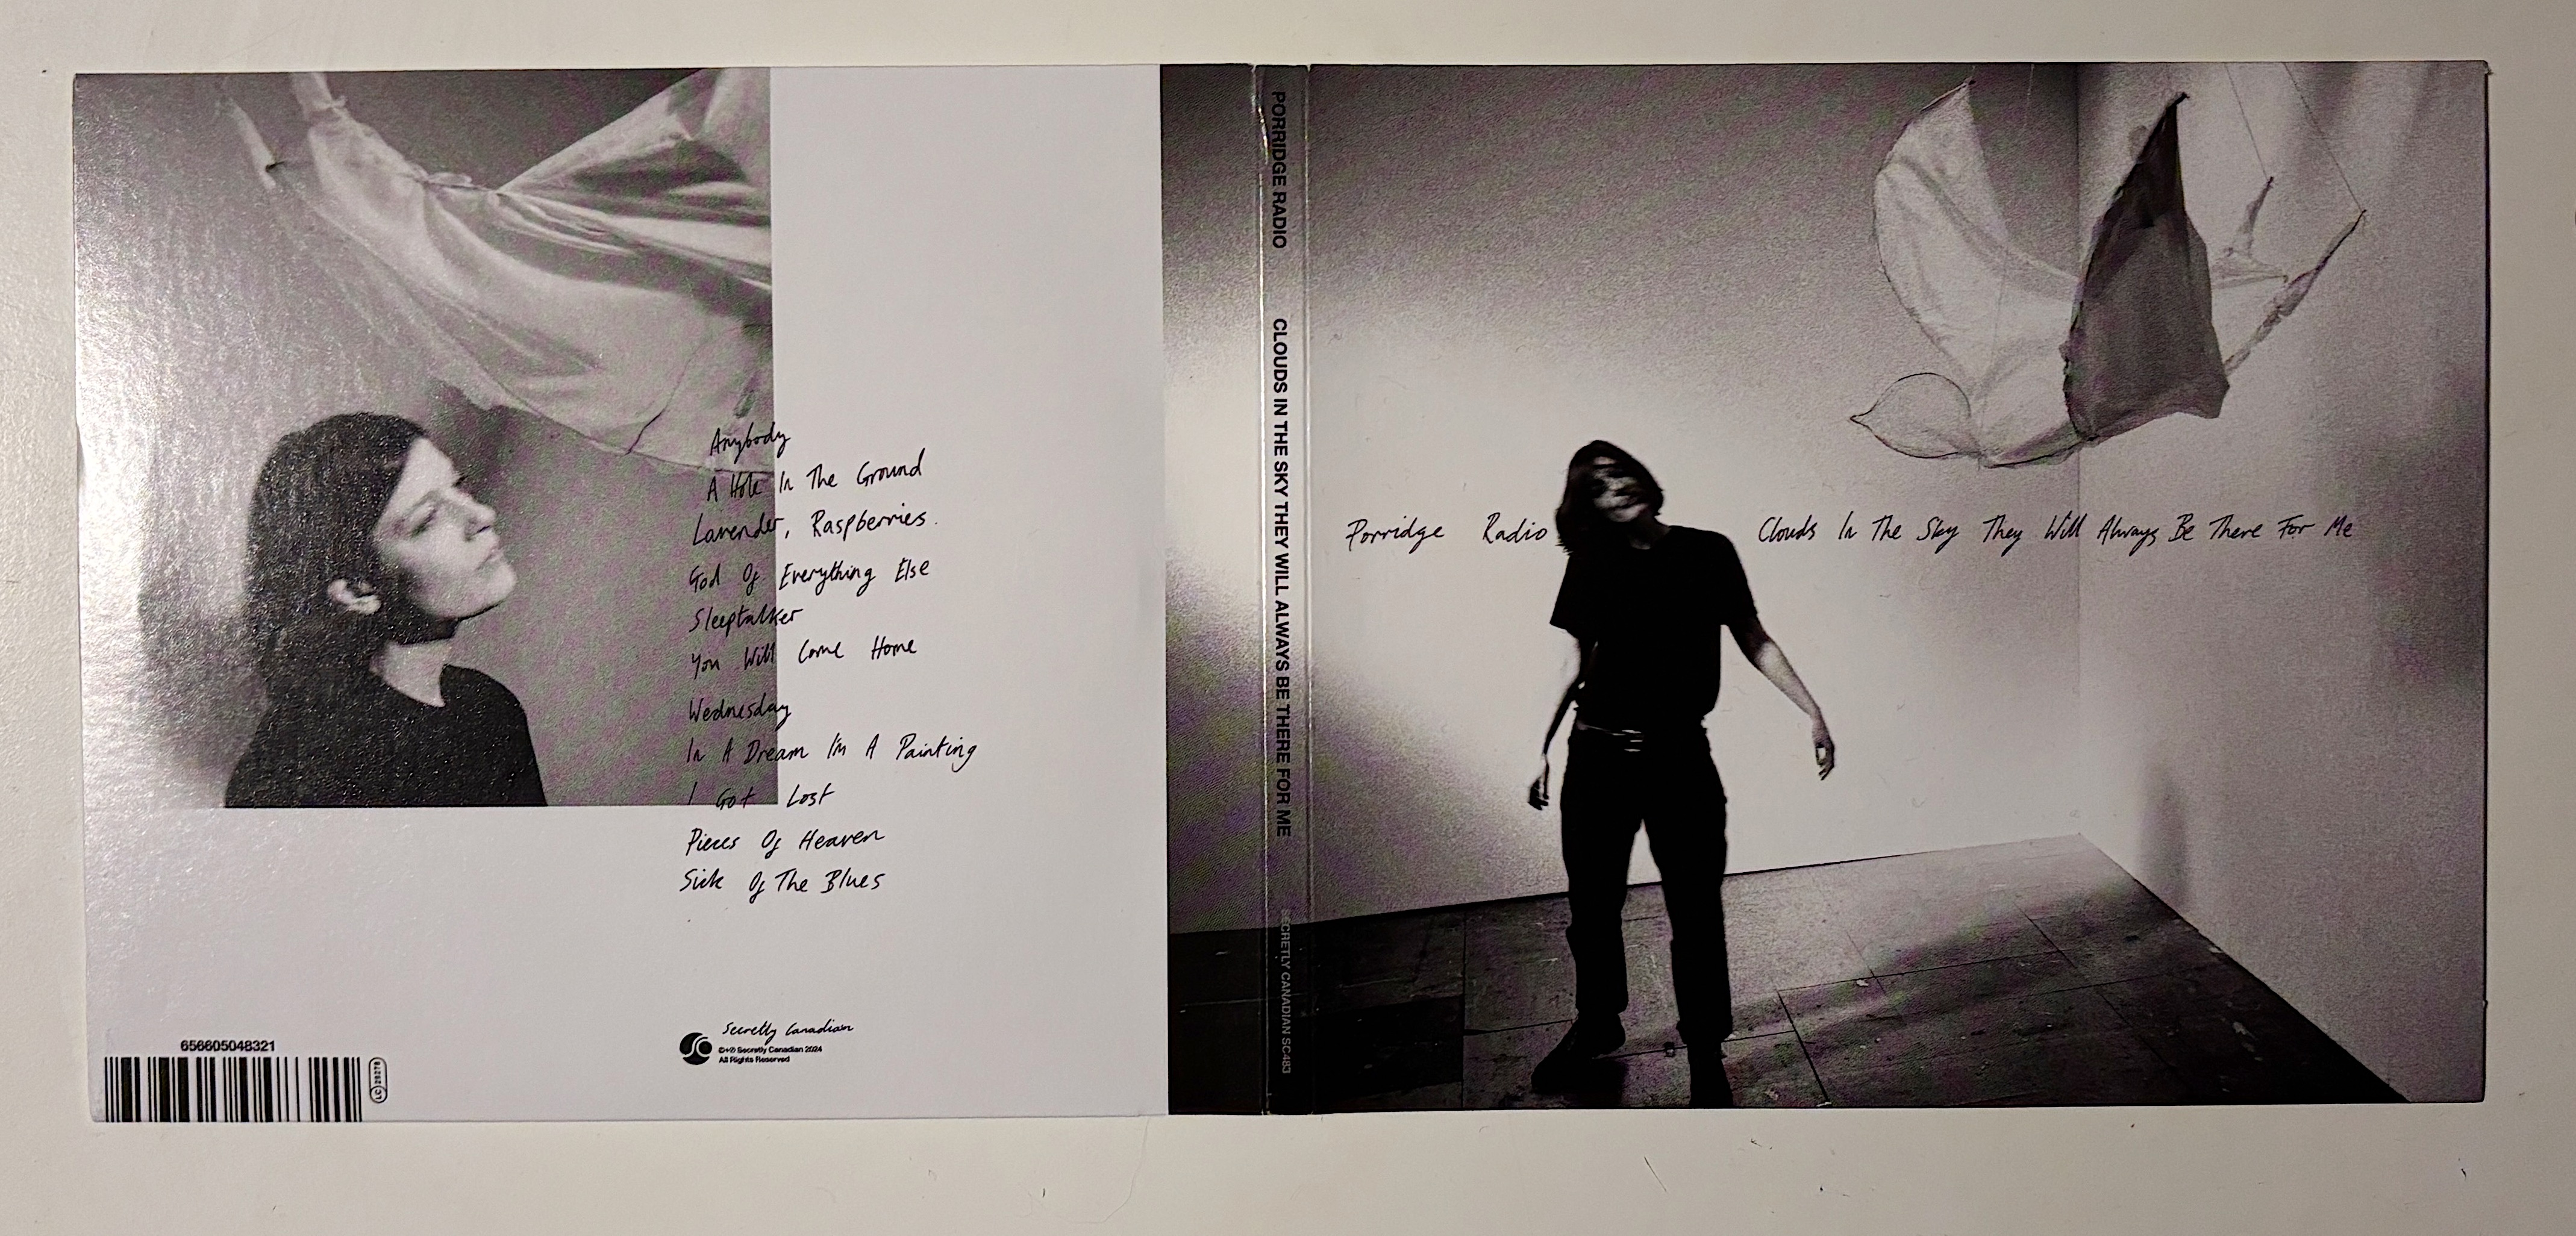 Anybody
A Hole In The Ground
Lavender, Raspberries.
God Of Everything Else
Sleeptalker
You Will Come Home
Wednesday
In A Dream I'm A Painting
I Got Lost
Pieces Of Heaven
Sick Of The Blues
656605048321
LC 28278
Secretly Canadian
©+℗ Secretly Canadian 2024
All Rights Reserved
PORRIDGE RADIO CLOUDS IN THE SKY THEY WILL ALWAYS BE THERE FOR ME SECRETLY CANADIAN SC483
Porridge Radio Clouds In The Sky They Will Always Be There For Me